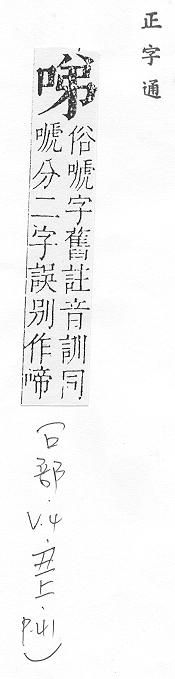 正字通
㖒
俗嗁字舊註音訓同
嗁分二字誤別作啼
(口部.V.4.丑上.P.41)